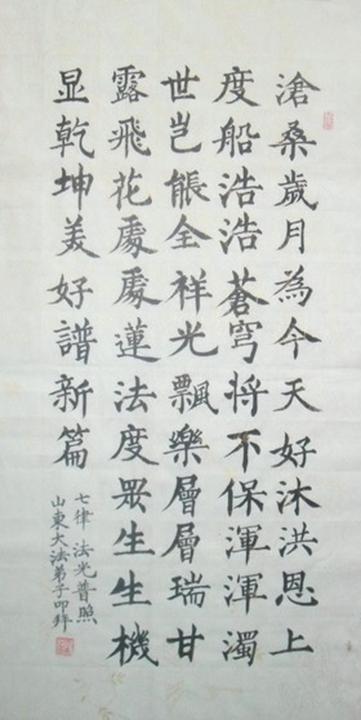 滄桑歲月為今天好沐洪恩上
度船浩浩蒼穹将不保渾渾濁
世岂能全祥光飄樂層層瑞甘
露飛花處處蓮法度眾生生機
显乾坤美好譜新篇
七律 法光普照
山東大法弟子叩拜